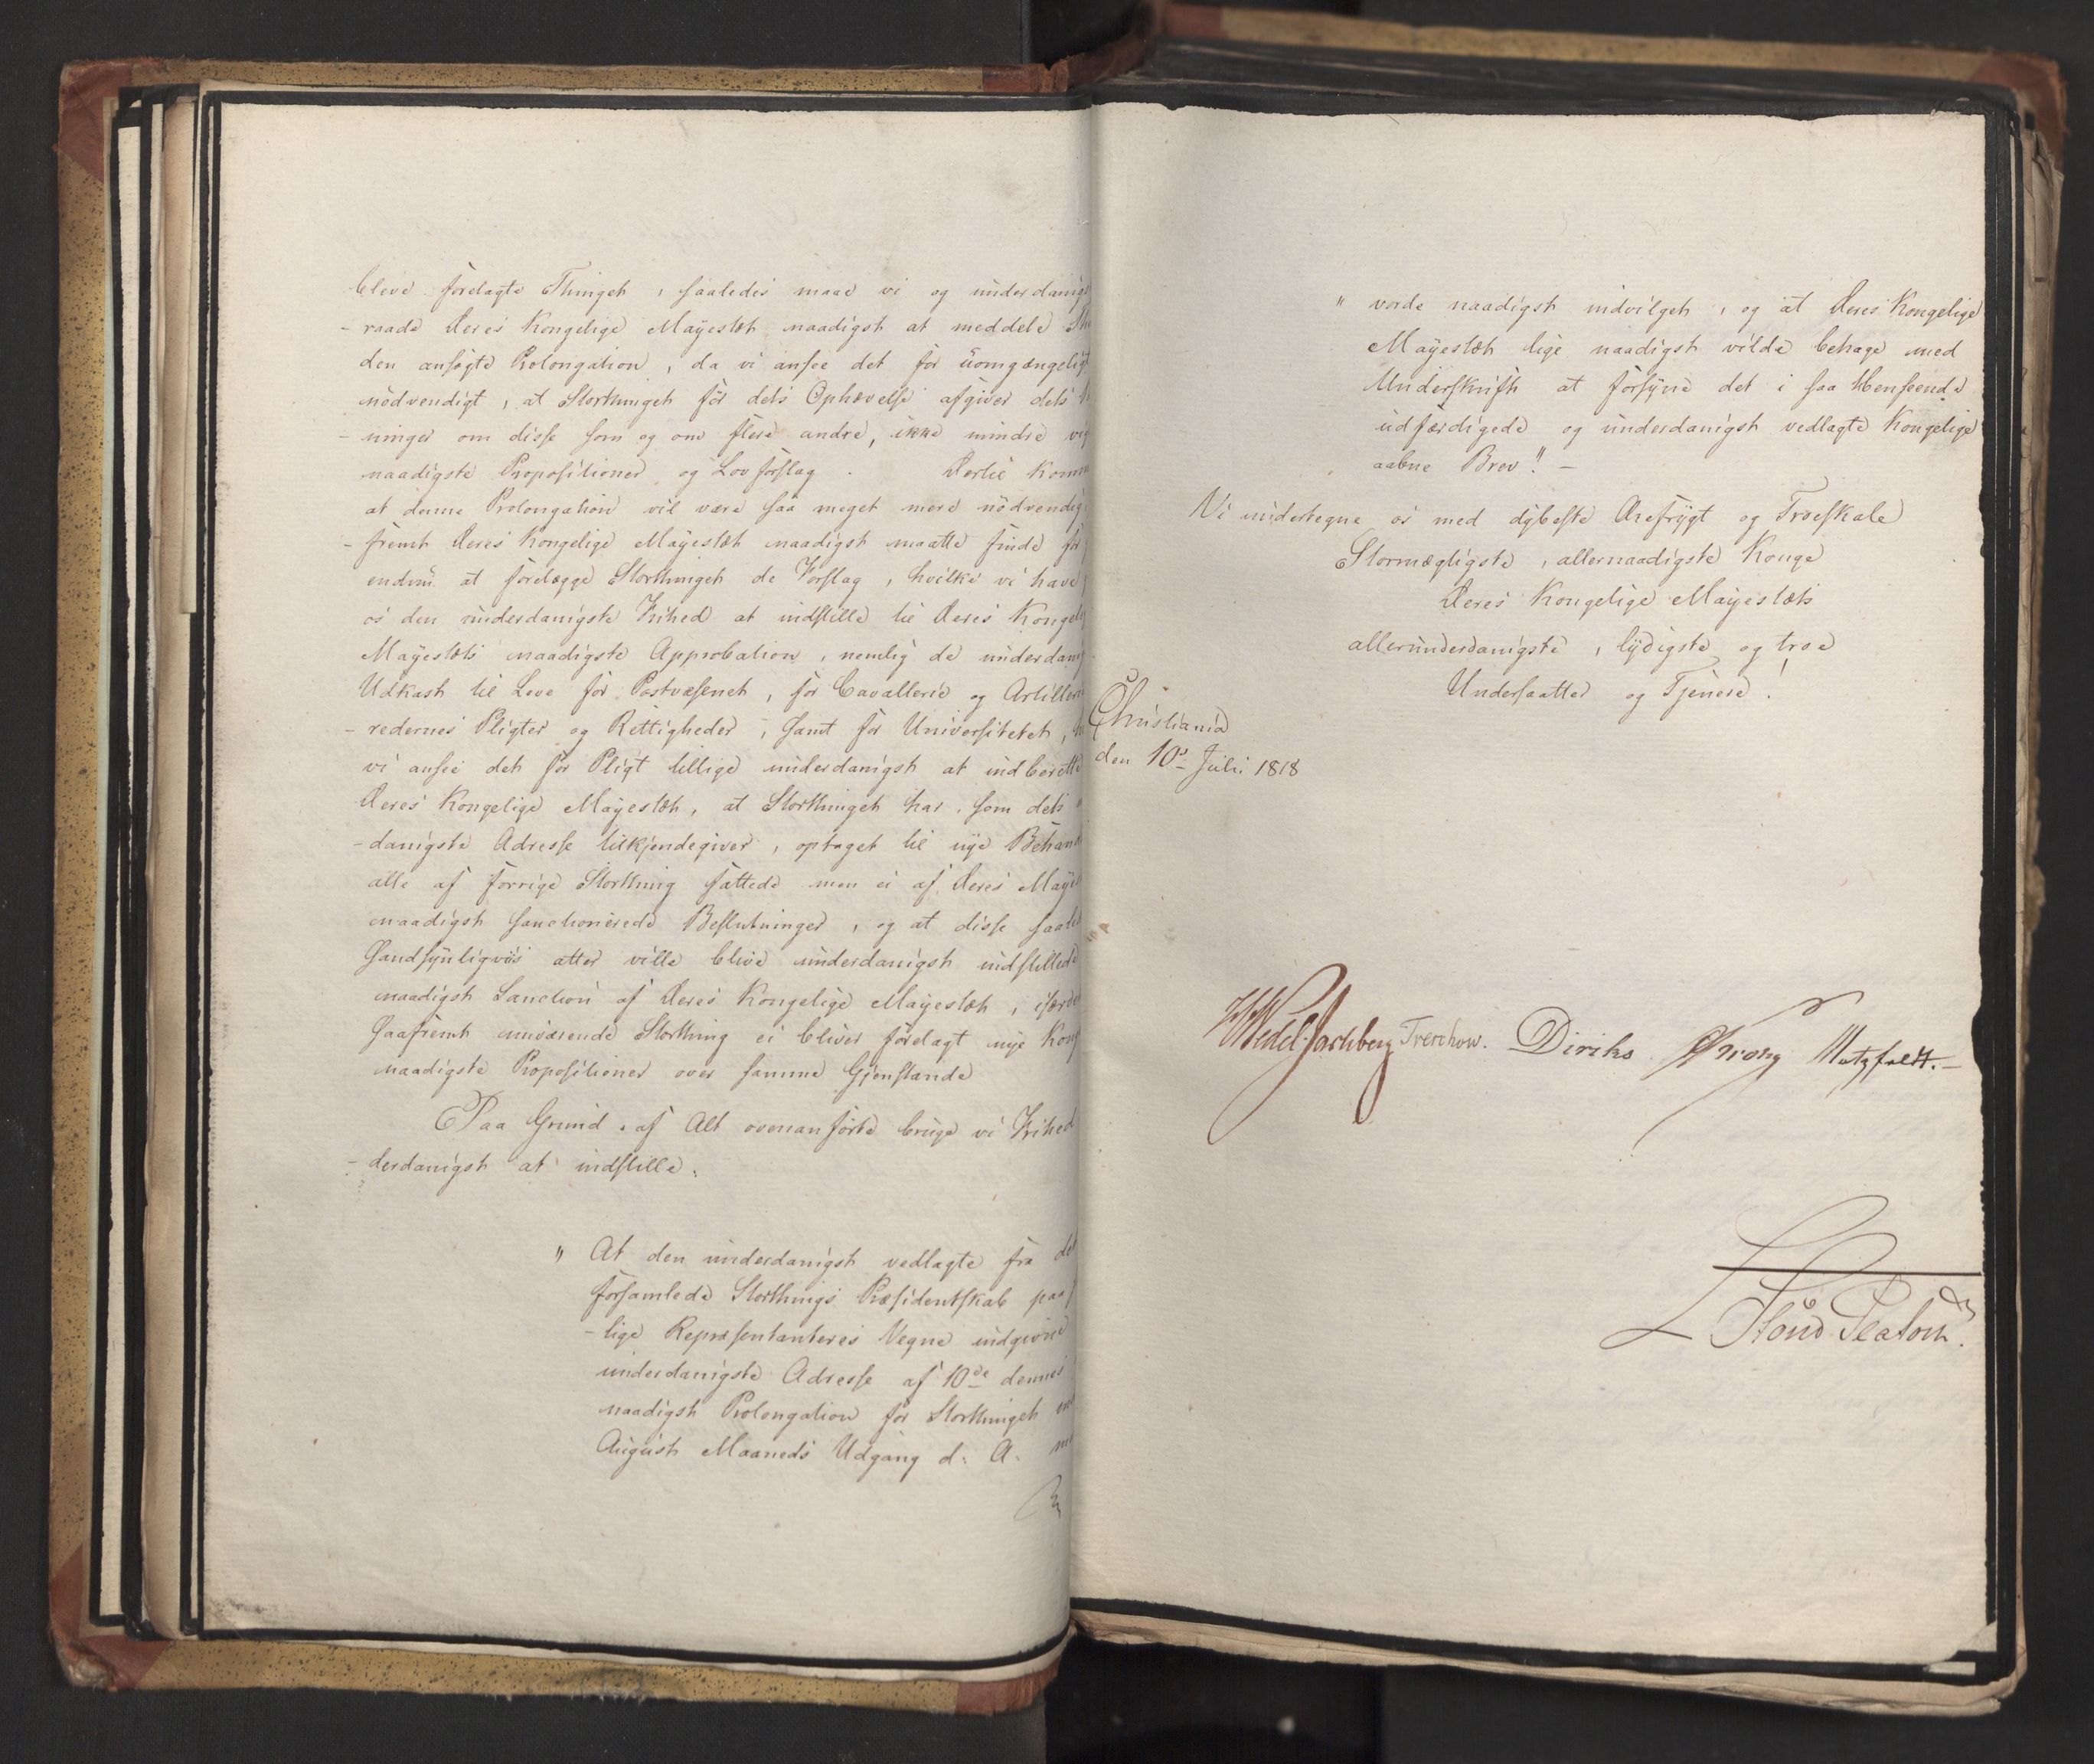 bleve forelagte Thinget, saaledes maae vi og underdanigs
-raade Deres Kongelige Mayestæt naadigst at meddele
den ansøgte Prolongation, da vi ansee det for uomgængeligt
nödvendigt, at Storthinget för dets Ophævelse afgiver dets
-ninger om disse som og om flere andre, ikke mindre vig
naadigste Propositioner og Lovforslag. Dertil komm
at denne Prolongation vil være saa meget mere nödvendig
-fremt Deres Kongelige Mayestæt naadigst maatte finde for
endnu at forelægge Storthinget de Forslag, hvilke vi have
os den underdanigste Frihed at indstille til Deres Kongel
Mayestæts naadigste Approbation, nemlig de underdan
Udkast til Love for Postvæsenet, for Cavallerie og Artiller
-redernes Pligter og Rettigheder, samt for Universitetet,
vi ansee det for Pligt tillige underdanigst at indberette
Deres Kongelige Mayestæt, at Storthinget har, som dets
-danigste Adresse tilkjendegiver, optaget til nye Behand
alle af forrige Storthing fattede men ei af Deres Maye
naadigst sanctionerede Beslutninger, og at disse saale
sandsynligviis atter ville blive underdanigst indstillede
naadigst Sanction af Deres Kongelige Mayestæt, især
saafremt nuværende Storthing ei bliver forelagt nye Kong
naadigste Propositioner over samme Gjenstande
Paa Grund af Alt ovenanförte bruge vi Frihed
-derdanigst at indstille:
" At den underdanigst vedlagte fra det
forsamlede Storthings Præsidentskab paa
-lige Repræsentanteres Vegne indgivne
underdanigste Adresse af 10de dennes
naadigst Prolongation for Storthinget
August Maaneds Udgang d: A:
" vorde naadigst indvilget, og at Deres Kongelige
Mayestæt lige naadigst vilde behage med
Underskrift at forsyne det i saa Henseende
udfærdigede og underdanigst vedlagte Kongelige
aabne Brev". -
Vi undertegne os med dybeste Ærefrygt og Troeskab
Stormægtigste, allernaadigste Konge
Deres Kongelige Mayestæts
allerunderdanigste, lydigste og troe
Undersaatter og Tjenere!
Christiania
den 10d Juli 1818
HWedel Jarlsberg Treschow. Diriks Krog Motzfeldt. -